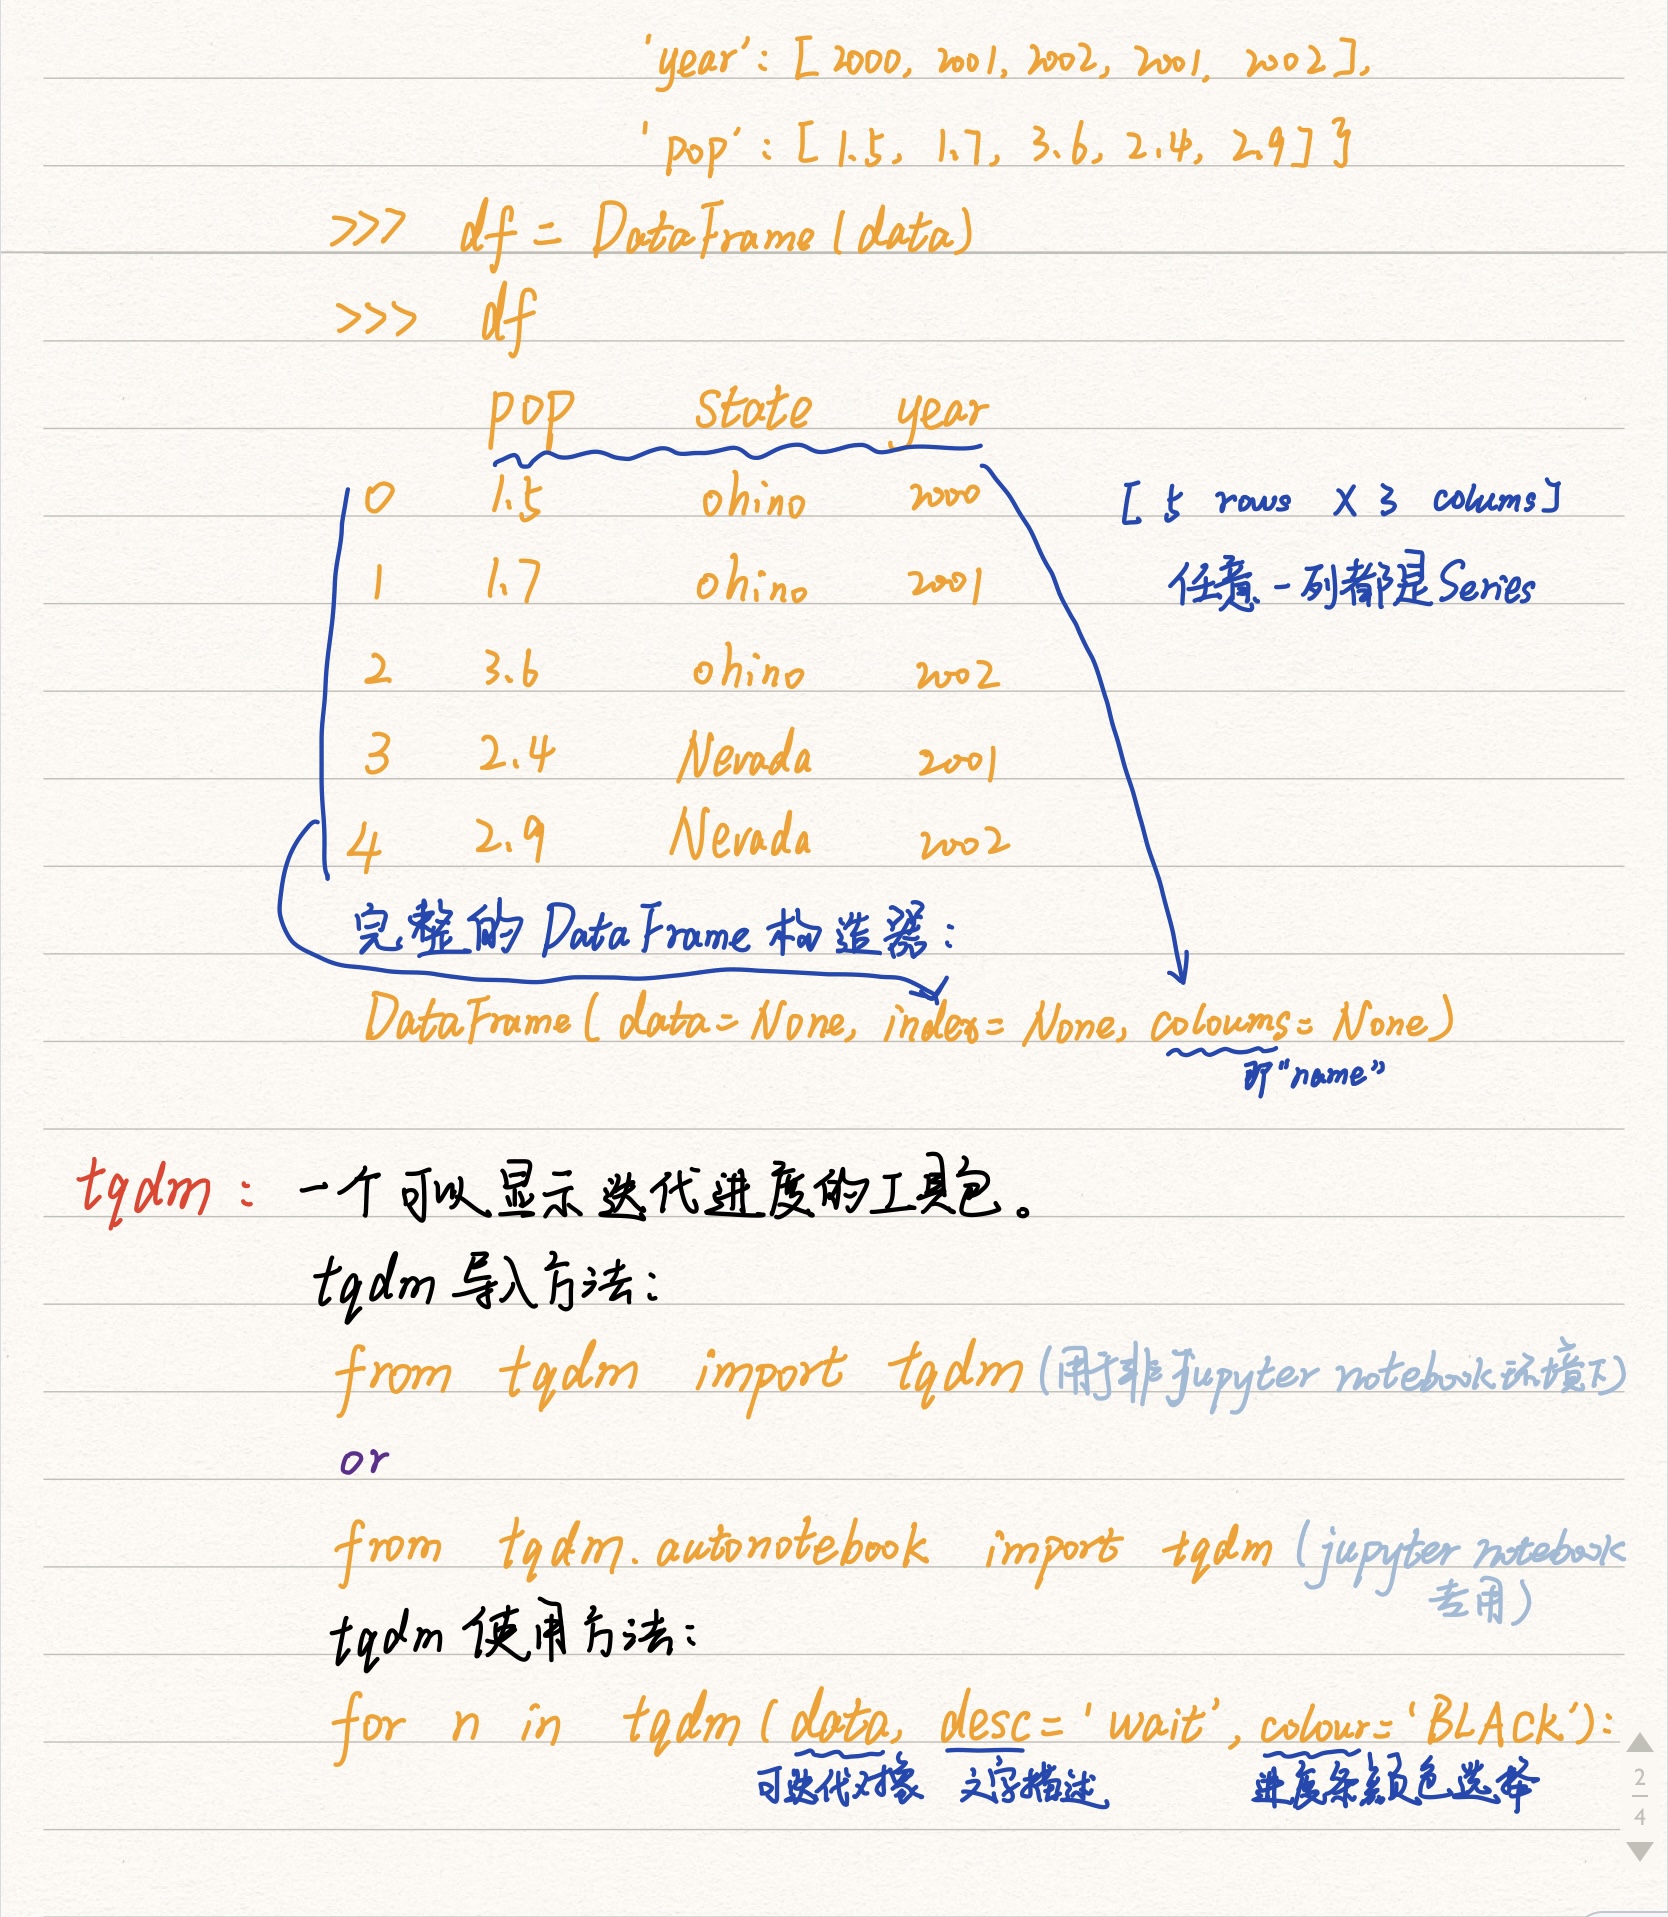 'year': [2000, 2001, 2002, 2001, 2002],
'pop': [1.5, 1.7, 3.6, 2.4, 2.9]}
>>> df = DataFrame(data)
>>> df
pop state year
0 1.5 ohino 2000 [5 rows X 3 colums]
1 1.7 ohino 2001 任意一列都是Series
2 3.6 ohino 2002
3 2.4 Nevada 2001
4 2.9 Nevada 2002
完整的DataFrame构造器:
DataFrame(data=None, index=None, coloums=None)
即"name"
tqdm: 一个可以显示迭代进度的工具包。
tqdm导入方法:
from tqdm import tqdm (用于非jupyter notebook环境下)
or
from tqdm.autonotebook import tqdm (jupyter notebook
专用)
tqdm使用方法:
for n in tqdm(data, desc='wait', colour='BLACK'):
可迭代对象 文字描述 进度条颜色选择
2
4